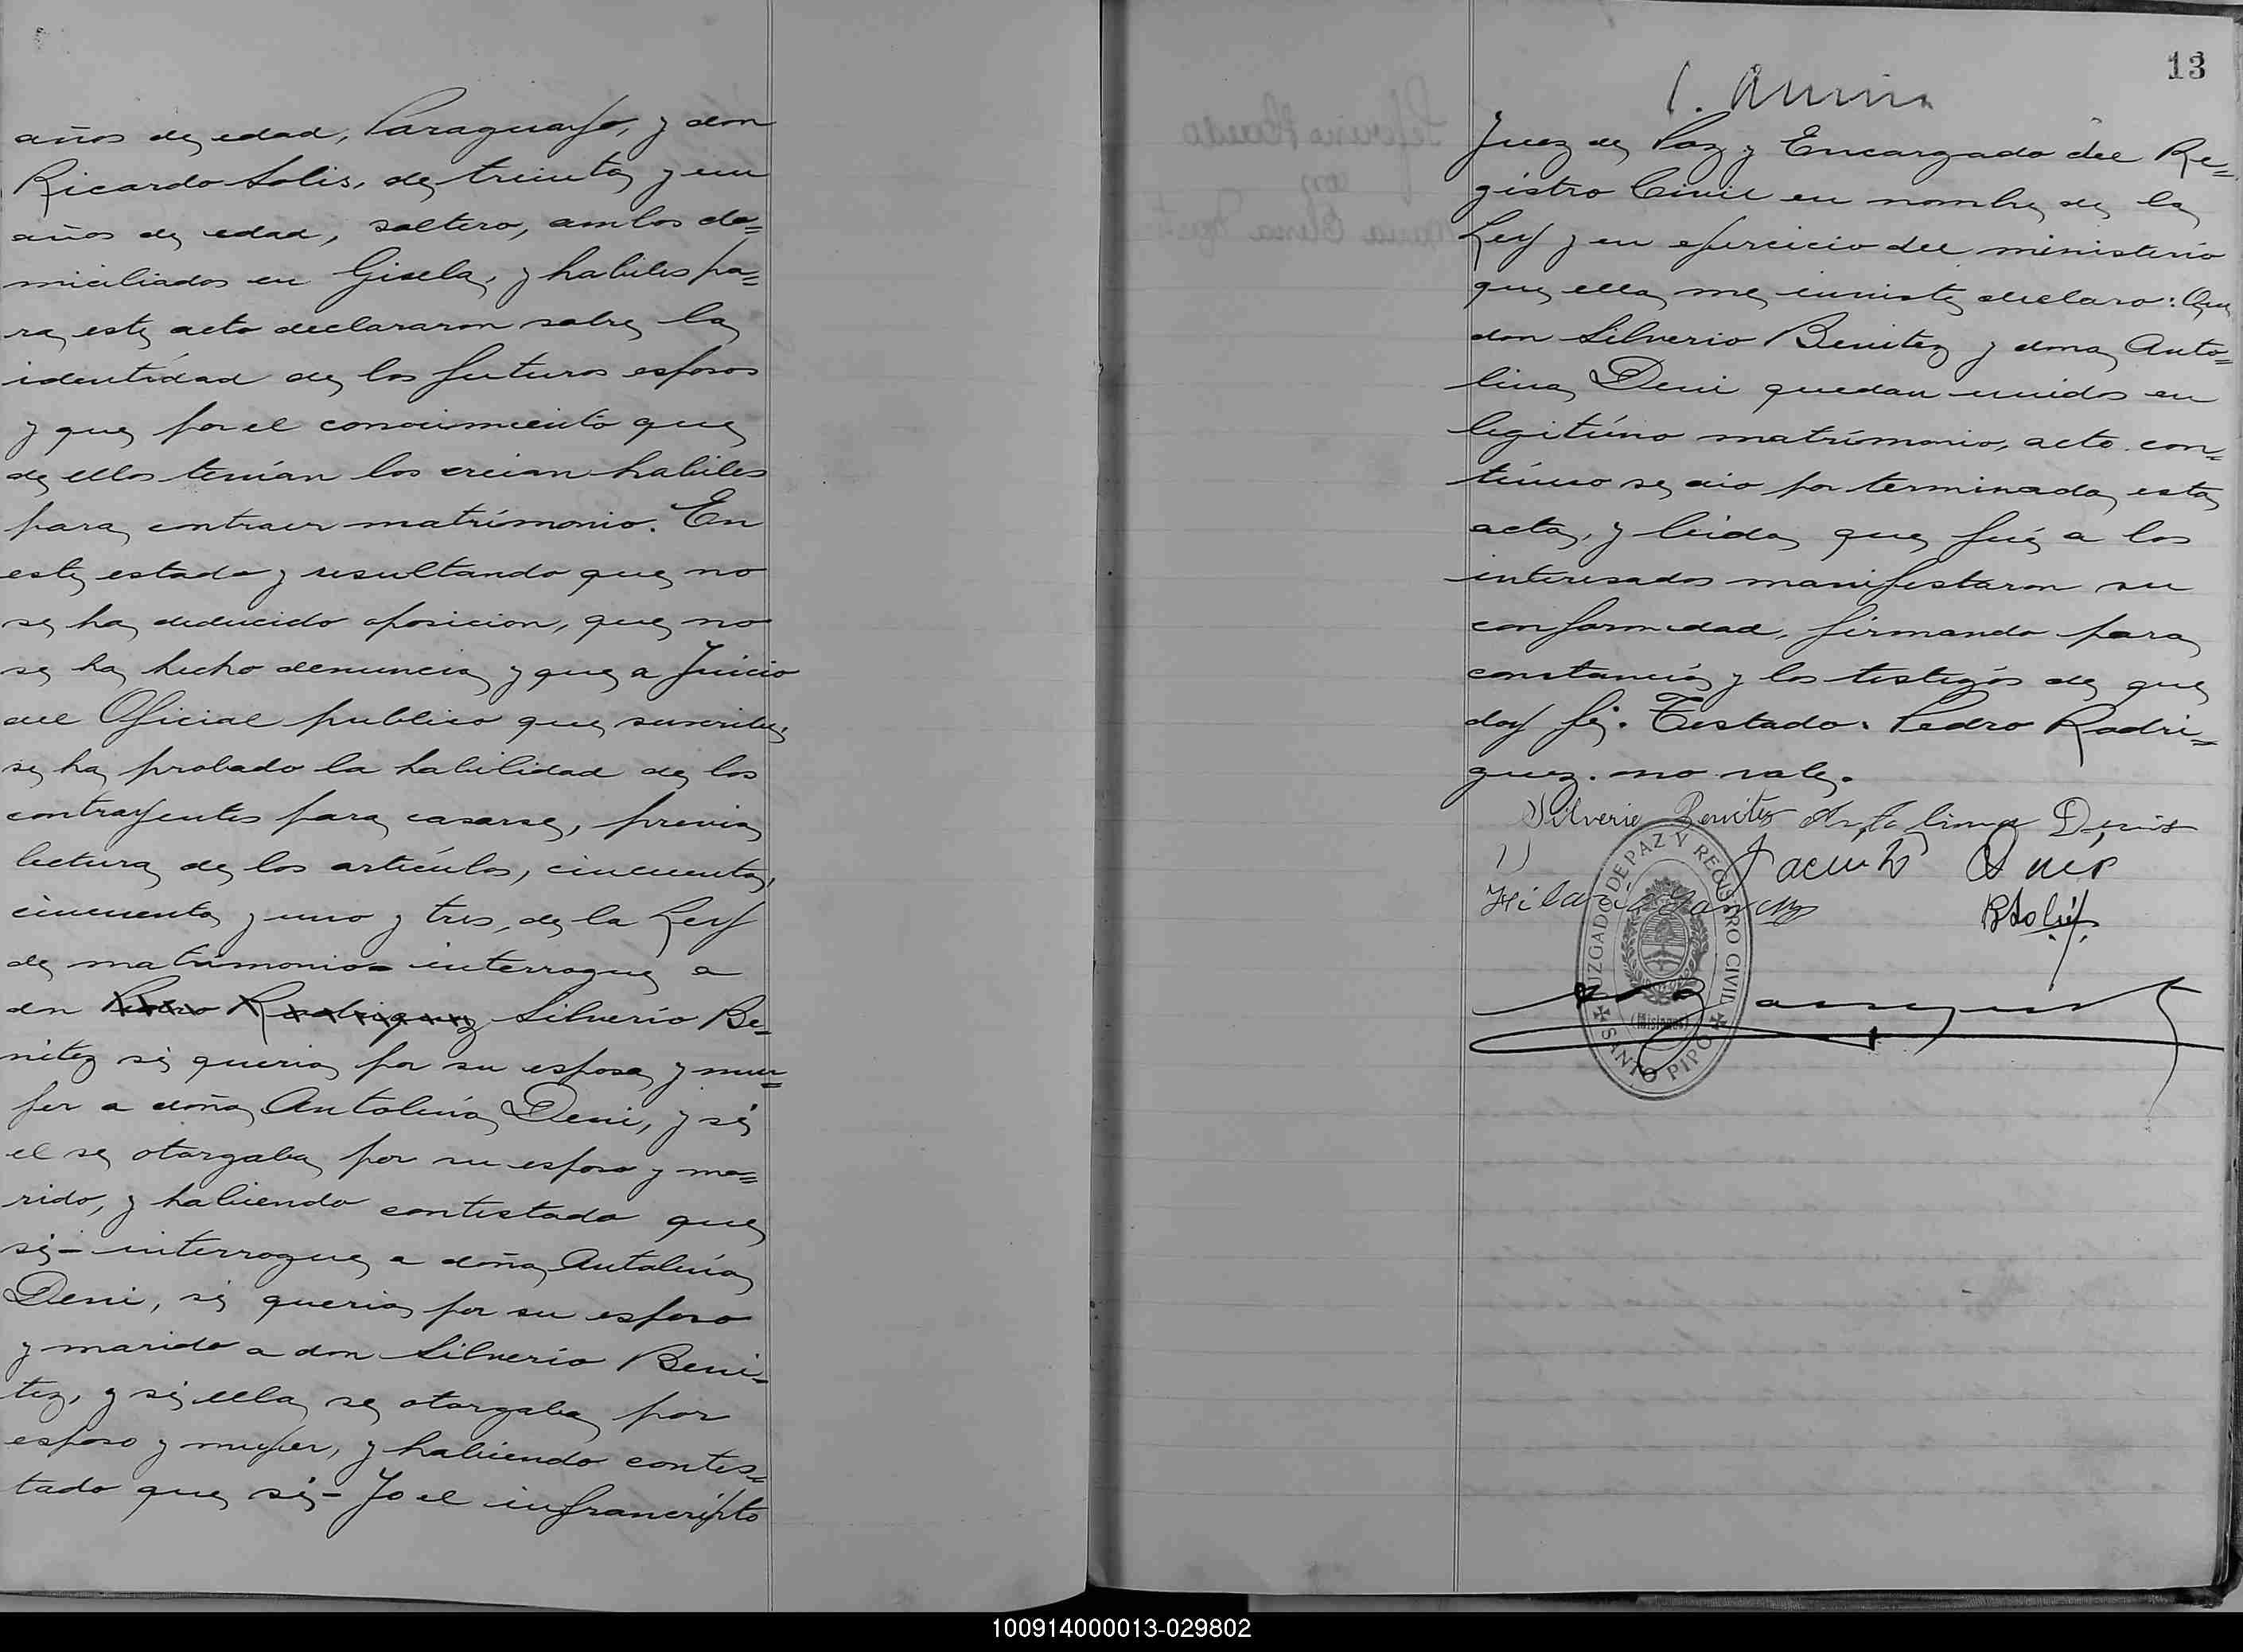 años de edad, Paraguayo, y don
Ricardo Solis, de treinta y un
años de edad, soltero, ambos do=
miciliados en Gisela, y habiles pa=
ra este acto declararon sobre la
identidad de los futuros esposos
y que por el conocimiento que
de ellos tenían los creian habiles
para contraer matrimonio. En
este estado y resultando que no
se ha deducido oposicion, que no
se ha hecho denuncia y que a Juicio
del Oficial publico que suscribe,
se ha probado la habilidad de los
contrayentes para casarse, previa
lectura de los artículos, cincuenta,
cincuenta y uno y tres, de la Ley
de matrimonio - interrogue a
don Pedro Rodriguez Silverio Be=
nitez si queria por su esposa y mu=
jer a doña Antolina Deni, y si
el se otorgaba por su esposo y ma=
rido, y habiendo contestado que
si - interrogue a doña Antolina
Deni, si queria por su esposo
y marido a don Silverio Beni=
tez, y si ella se otorgaba por
esposo y mujer, y habiendo contes=
tado que si - Yo el infrascripto
13
Juez de Paz y Encargado del Re=
gistro Civil en nombre de la
Ley y en ejercicio del ministerio
que ella me inviste declaro: Que
don Silverio Benitez y dona Anto=
lina Deni quedan unidos en
legitimo matrimonio, acto con=
tinuo se dio por terminada esta
acta, y leida que fué a los
interesados manifestaron su
conformidad, firmando para
constancia y los testigos de que
doy fé. Testado. Pedro Rodri=
guez. no vale.
Silverio Benitez Antolina Denis
Jacinto
Hilario Sanchez RSolis
JUZGADO DE PAZ Y REGISTRO CIVIL
(Misiones)
SANTO PIPO
100914000013-029802